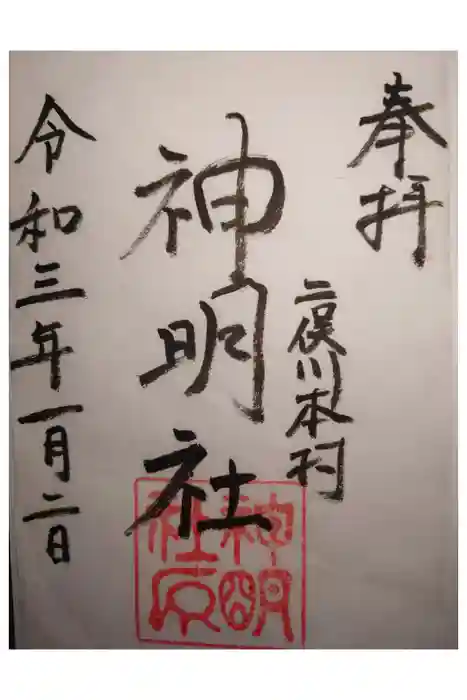 奉拝
二俣川本村
神明社
神明
社印
令和三年一月二日